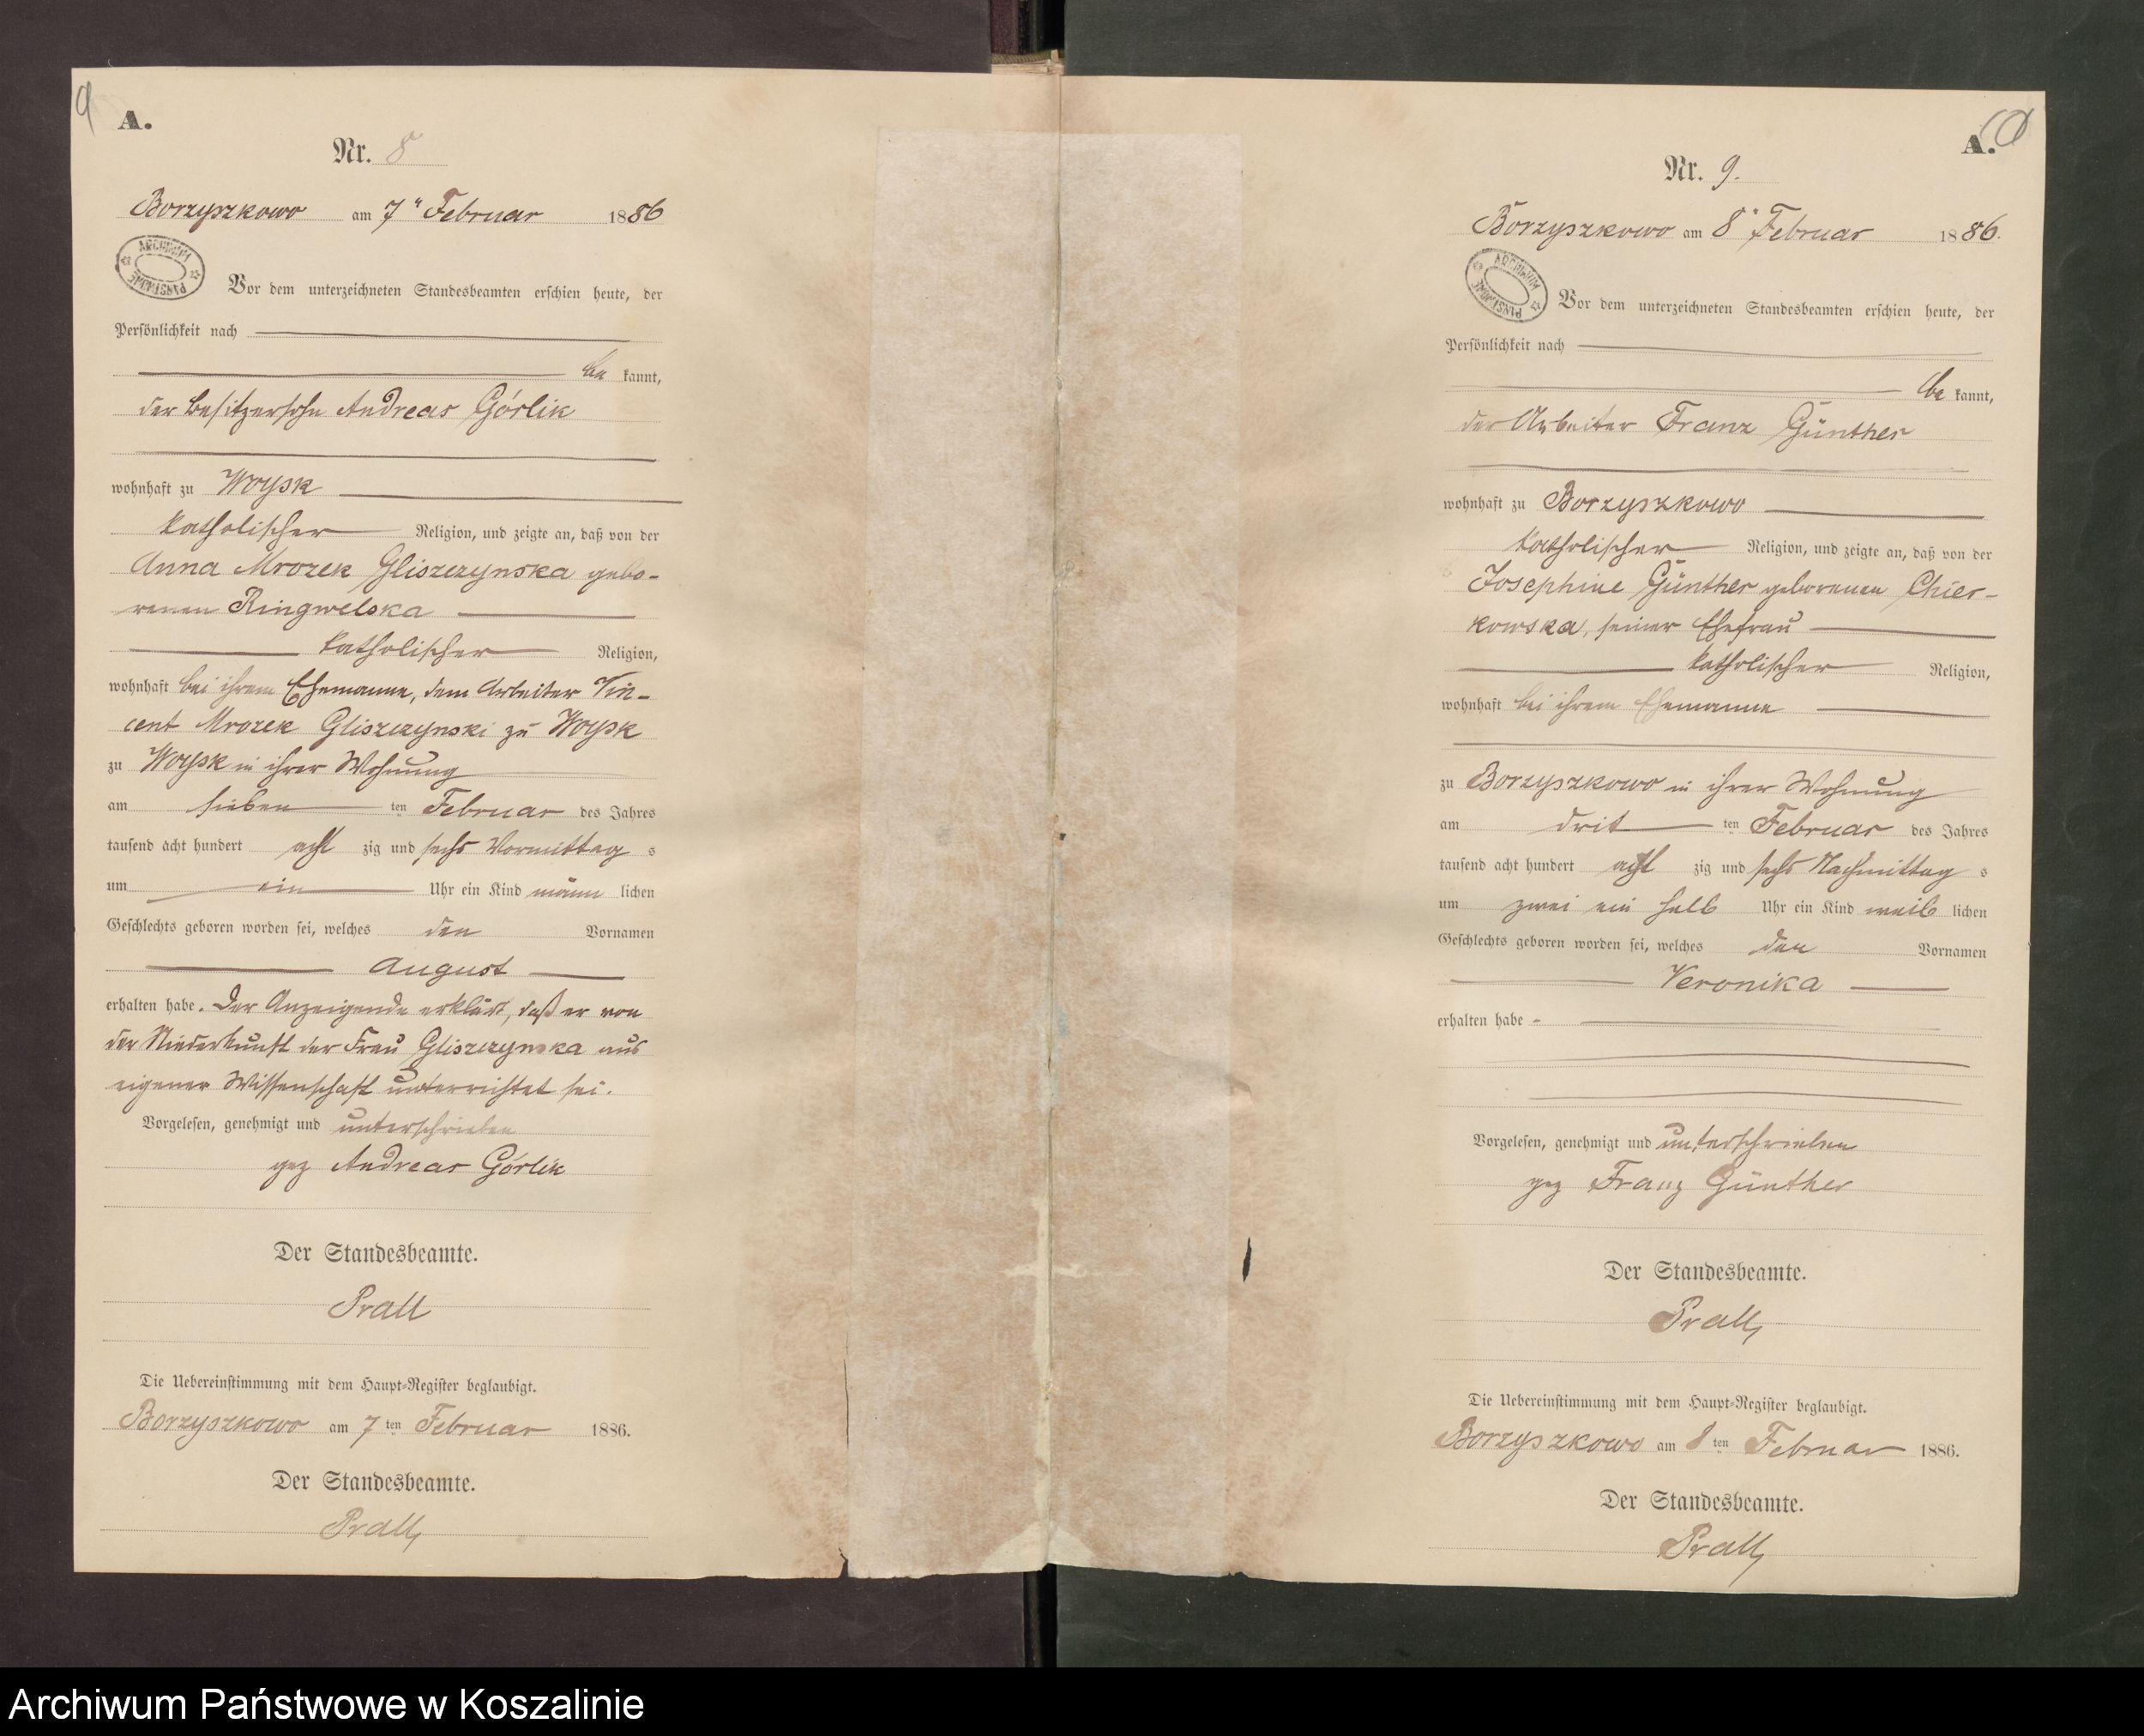 9
A.
Nr. 8
Borzyszkowo am 7" Februar 1886
ARCHIWUM PAŃSTWOWE
Vor dem unterzeichneten Standesbeamten erschien heute, der
Persönlichkeit nach
be kannt,
der Besitzersohn Andreas Górlik
wohnhaft zu Woysk
katholischer Religion, und zeigte an, daß von der
Anna Mrozek Gliszczynska gebo-
renen Ringwelska
katholischer Religion,
wohnhaft bei ihrem Ehemanne, dem Arbeiter Vin-
cent Mrozek Gliszczynski zu Woysk
zu Woysk in ihrer Wohnung
am sieben ten Februar des Jahres
tausend acht hundert acht zig und sechs Vormittag s
um ein Uhr ein Kind männ lichen
Geschlechts geboren worden sei, welches den Vornamen
August
erhalten habe. Der Anzeigende erklärt, daß er von
der Niederkunft der Frau Gliszczynska aus
eigener Wissenschaft unterrichtet sei.
Vorgelesen, genehmigt und unterschrieben
gez Andreas Górlik
Der Standesbeamte.
Prall
Die Uebereinstimmung mit dem Haupt-Register beglaubigt.
Borzyszkowo am 7 ten Februar 1886.
Der Standesbeamte.
Prall
A.
Nr. 9.
Borzyszkowo am 8" Februar 1886.
ARCHIWUM PAŃSTWOWE
Vor dem unterzeichneten Standesbeamten erschien heute, der
Persönlichkeit nach
be kannt,
der Arbeiter Franz Günther
wohnhaft zu Borzyszkowo
katholischer Religion, und zeigte an, daß von der
Josephine Günther geborenen Chier-
kowska, seiner Ehefrau
katholischer Religion,
wohnhaft bei ihrem Ehemanne
zu Borzyszkowo in ihrer Wohnung
am drit ten Februar des Jahres
tausend acht hundert acht zig und sechs Nachmittag s
um zwei ein halb Uhr ein Kind weib lichen
Geschlechts geboren worden sei, welches den Vornamen
Veronika
erhalten habe -
Vorgelesen, genehmigt und unterschrieben
gez Franz Günther
Der Standesbeamte.
Prall
Die Uebereinstimmung mit dem Haupt-Register beglaubigt.
Borzyszkowo am 8 ten Februar 1886.
Der Standesbeamte.
Prall
Archiwum Państwowe w Koszalinie